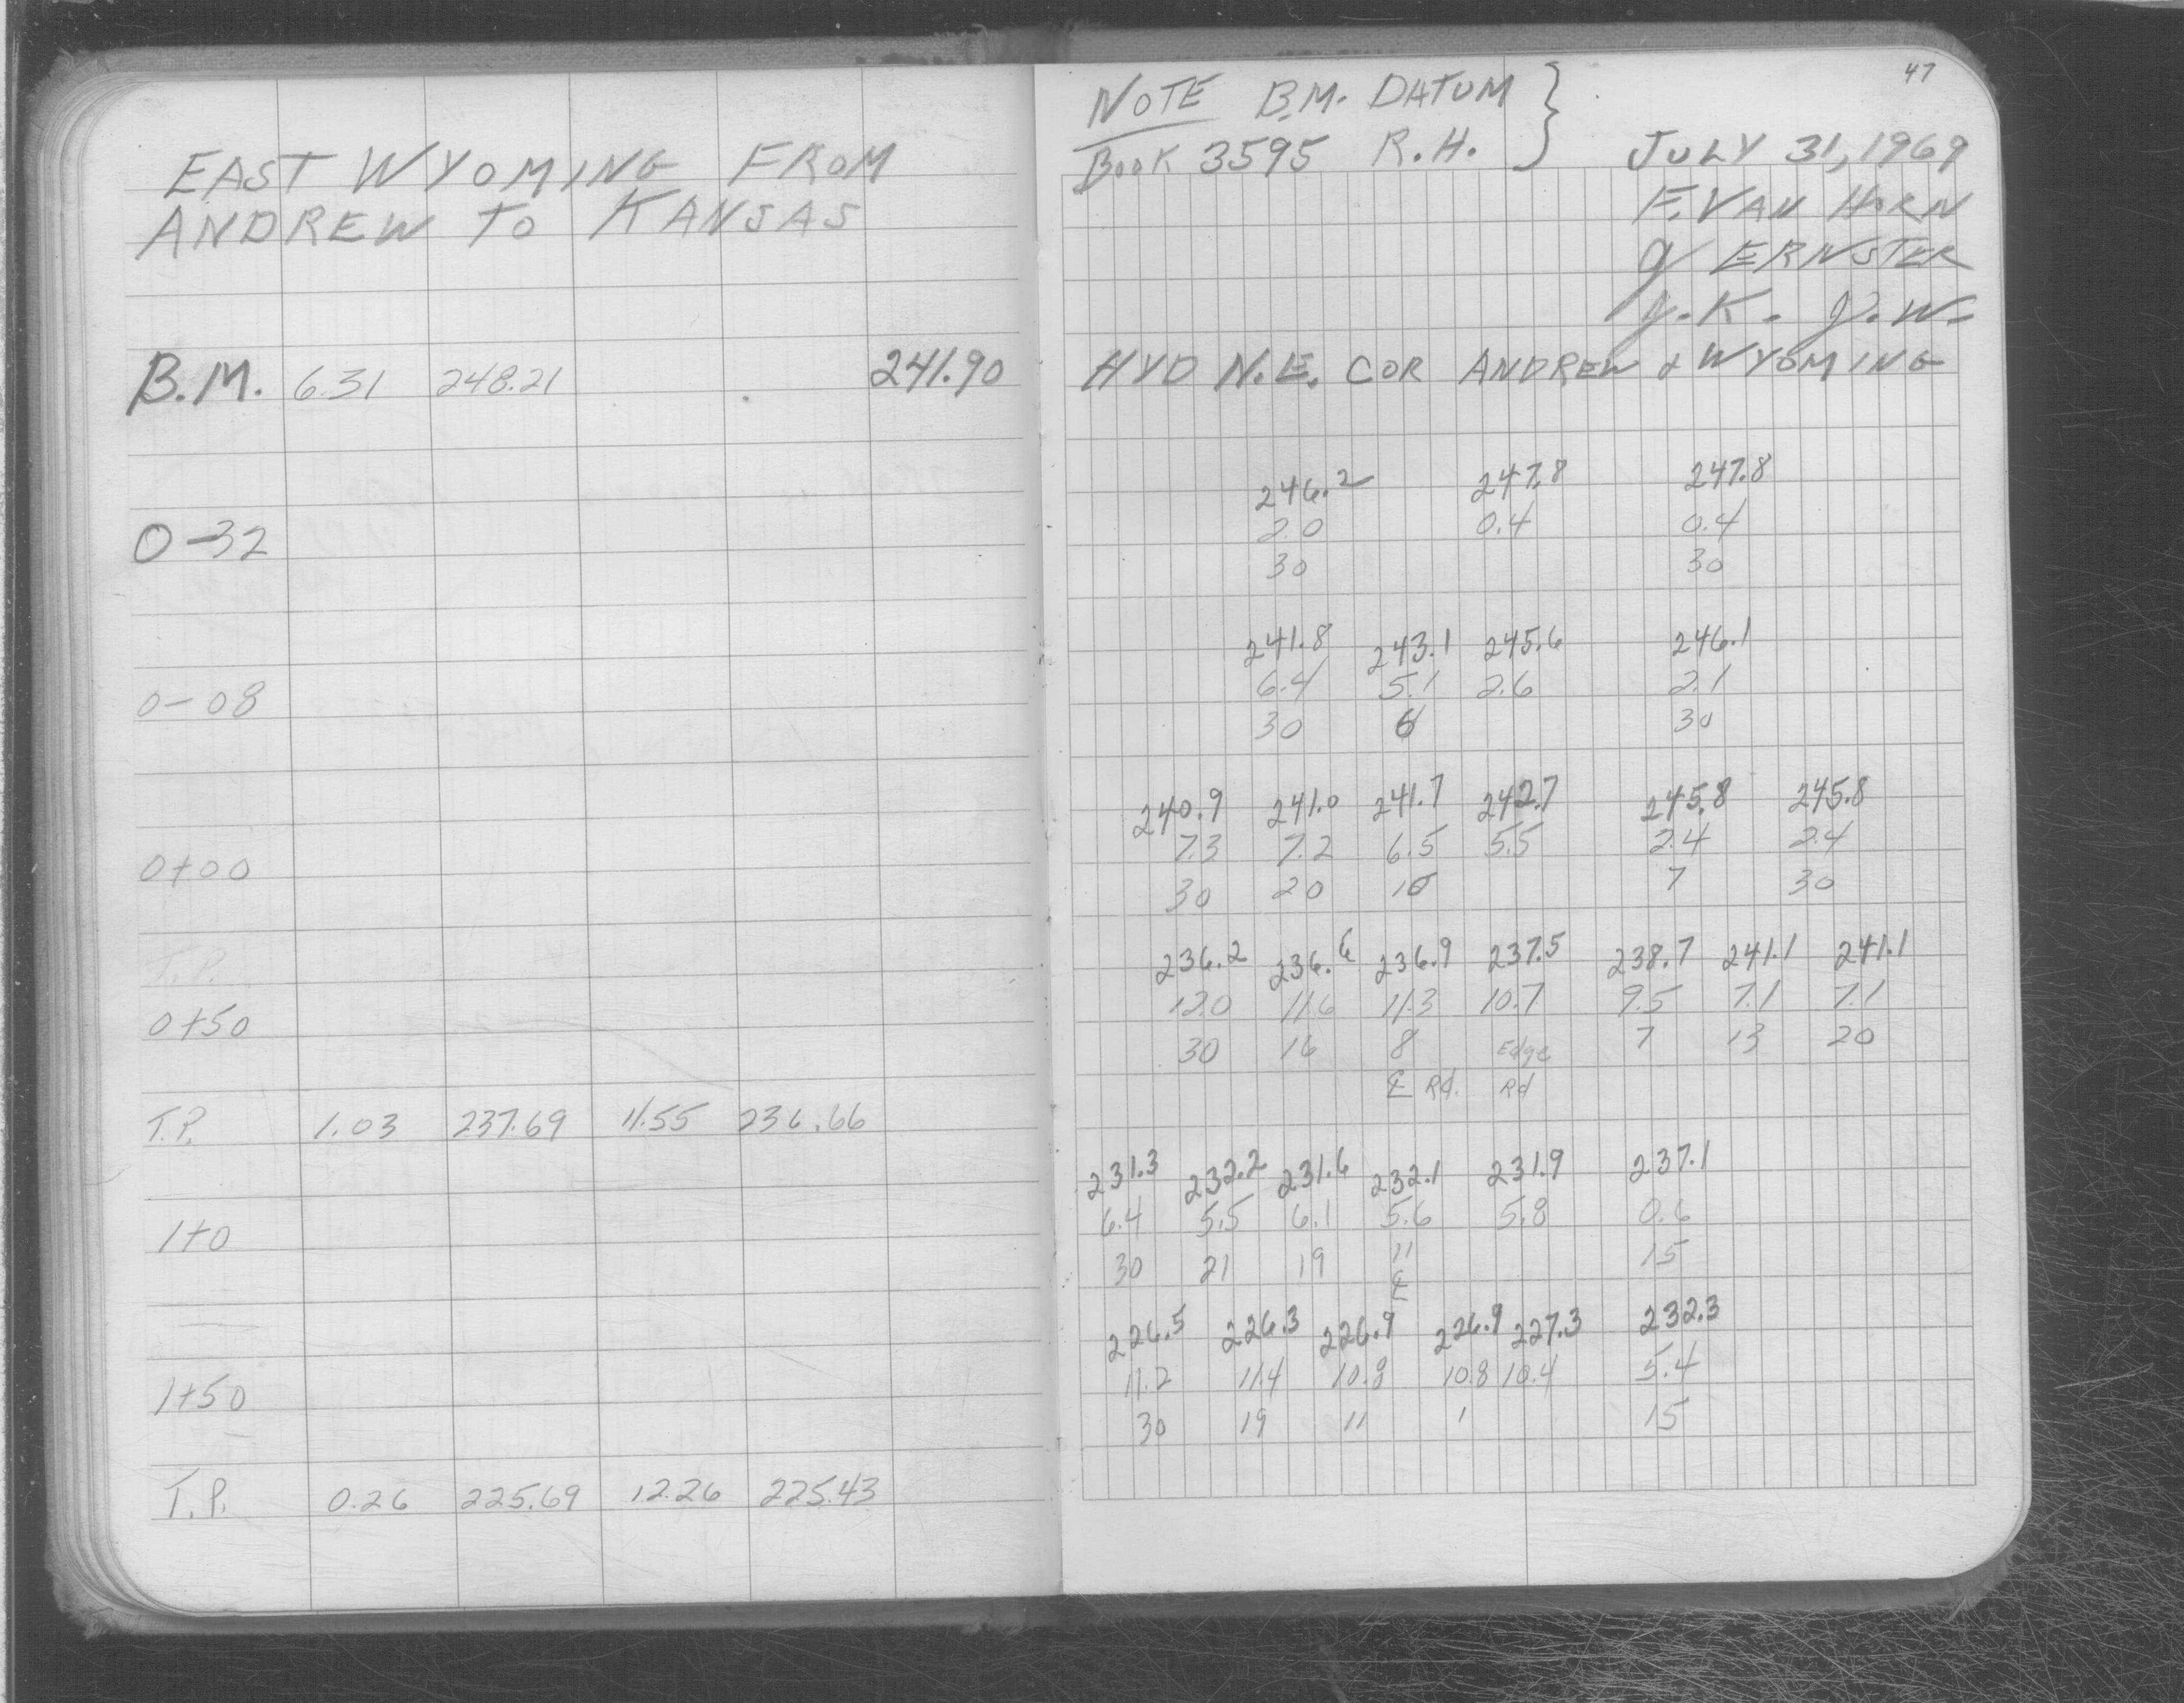 EAST WYOMING FROM
ANDREW TO KANSAS
B.M. 6.31 248.21 241.90
0-32
0-08
0+00
T.P.
0+50
T.P. 1.03 237.69 11.55 236.66
1+0
1+50
T.P. 0.26 225.69 12.26 225.43
47
NOTE B.M. DATUM }
BOOK 3595 R.H.
JULY 31, 1969
F. VAN HORN
J ERNSTER
J.K. J.W.
HYD N.E. COR ANDREW & WYOMING
246.2 247.8 247.8
2.0 0.4 0.4
30 30
241.8 243.1 245.6 246.1
6.4 5.1 2.6 2.1
30 6 30
240.9 241.0 241.7 242.7 245.8 245.8
7.3 7.2 6.5 5.5 2.4 2.4
30 20 10 7 30
236.2 236.6 236.9 237.5 238.7 241.1 241.1
12.0 11.6 11.3 10.7 9.5 7.1 7.1
30 16 8 Edge 7 13 20
℄ Rd. Rd
231.3 232.2 231.6 232.1 231.9 237.1
6.4 5.5 6.1 5.6 5.8 0.6
30 21 19 11 15
℄
226.5 226.3 226.9 226.9 227.3 232.3
11.2 11.4 10.8 10.8 10.4 5.4
30 19 11 1 15